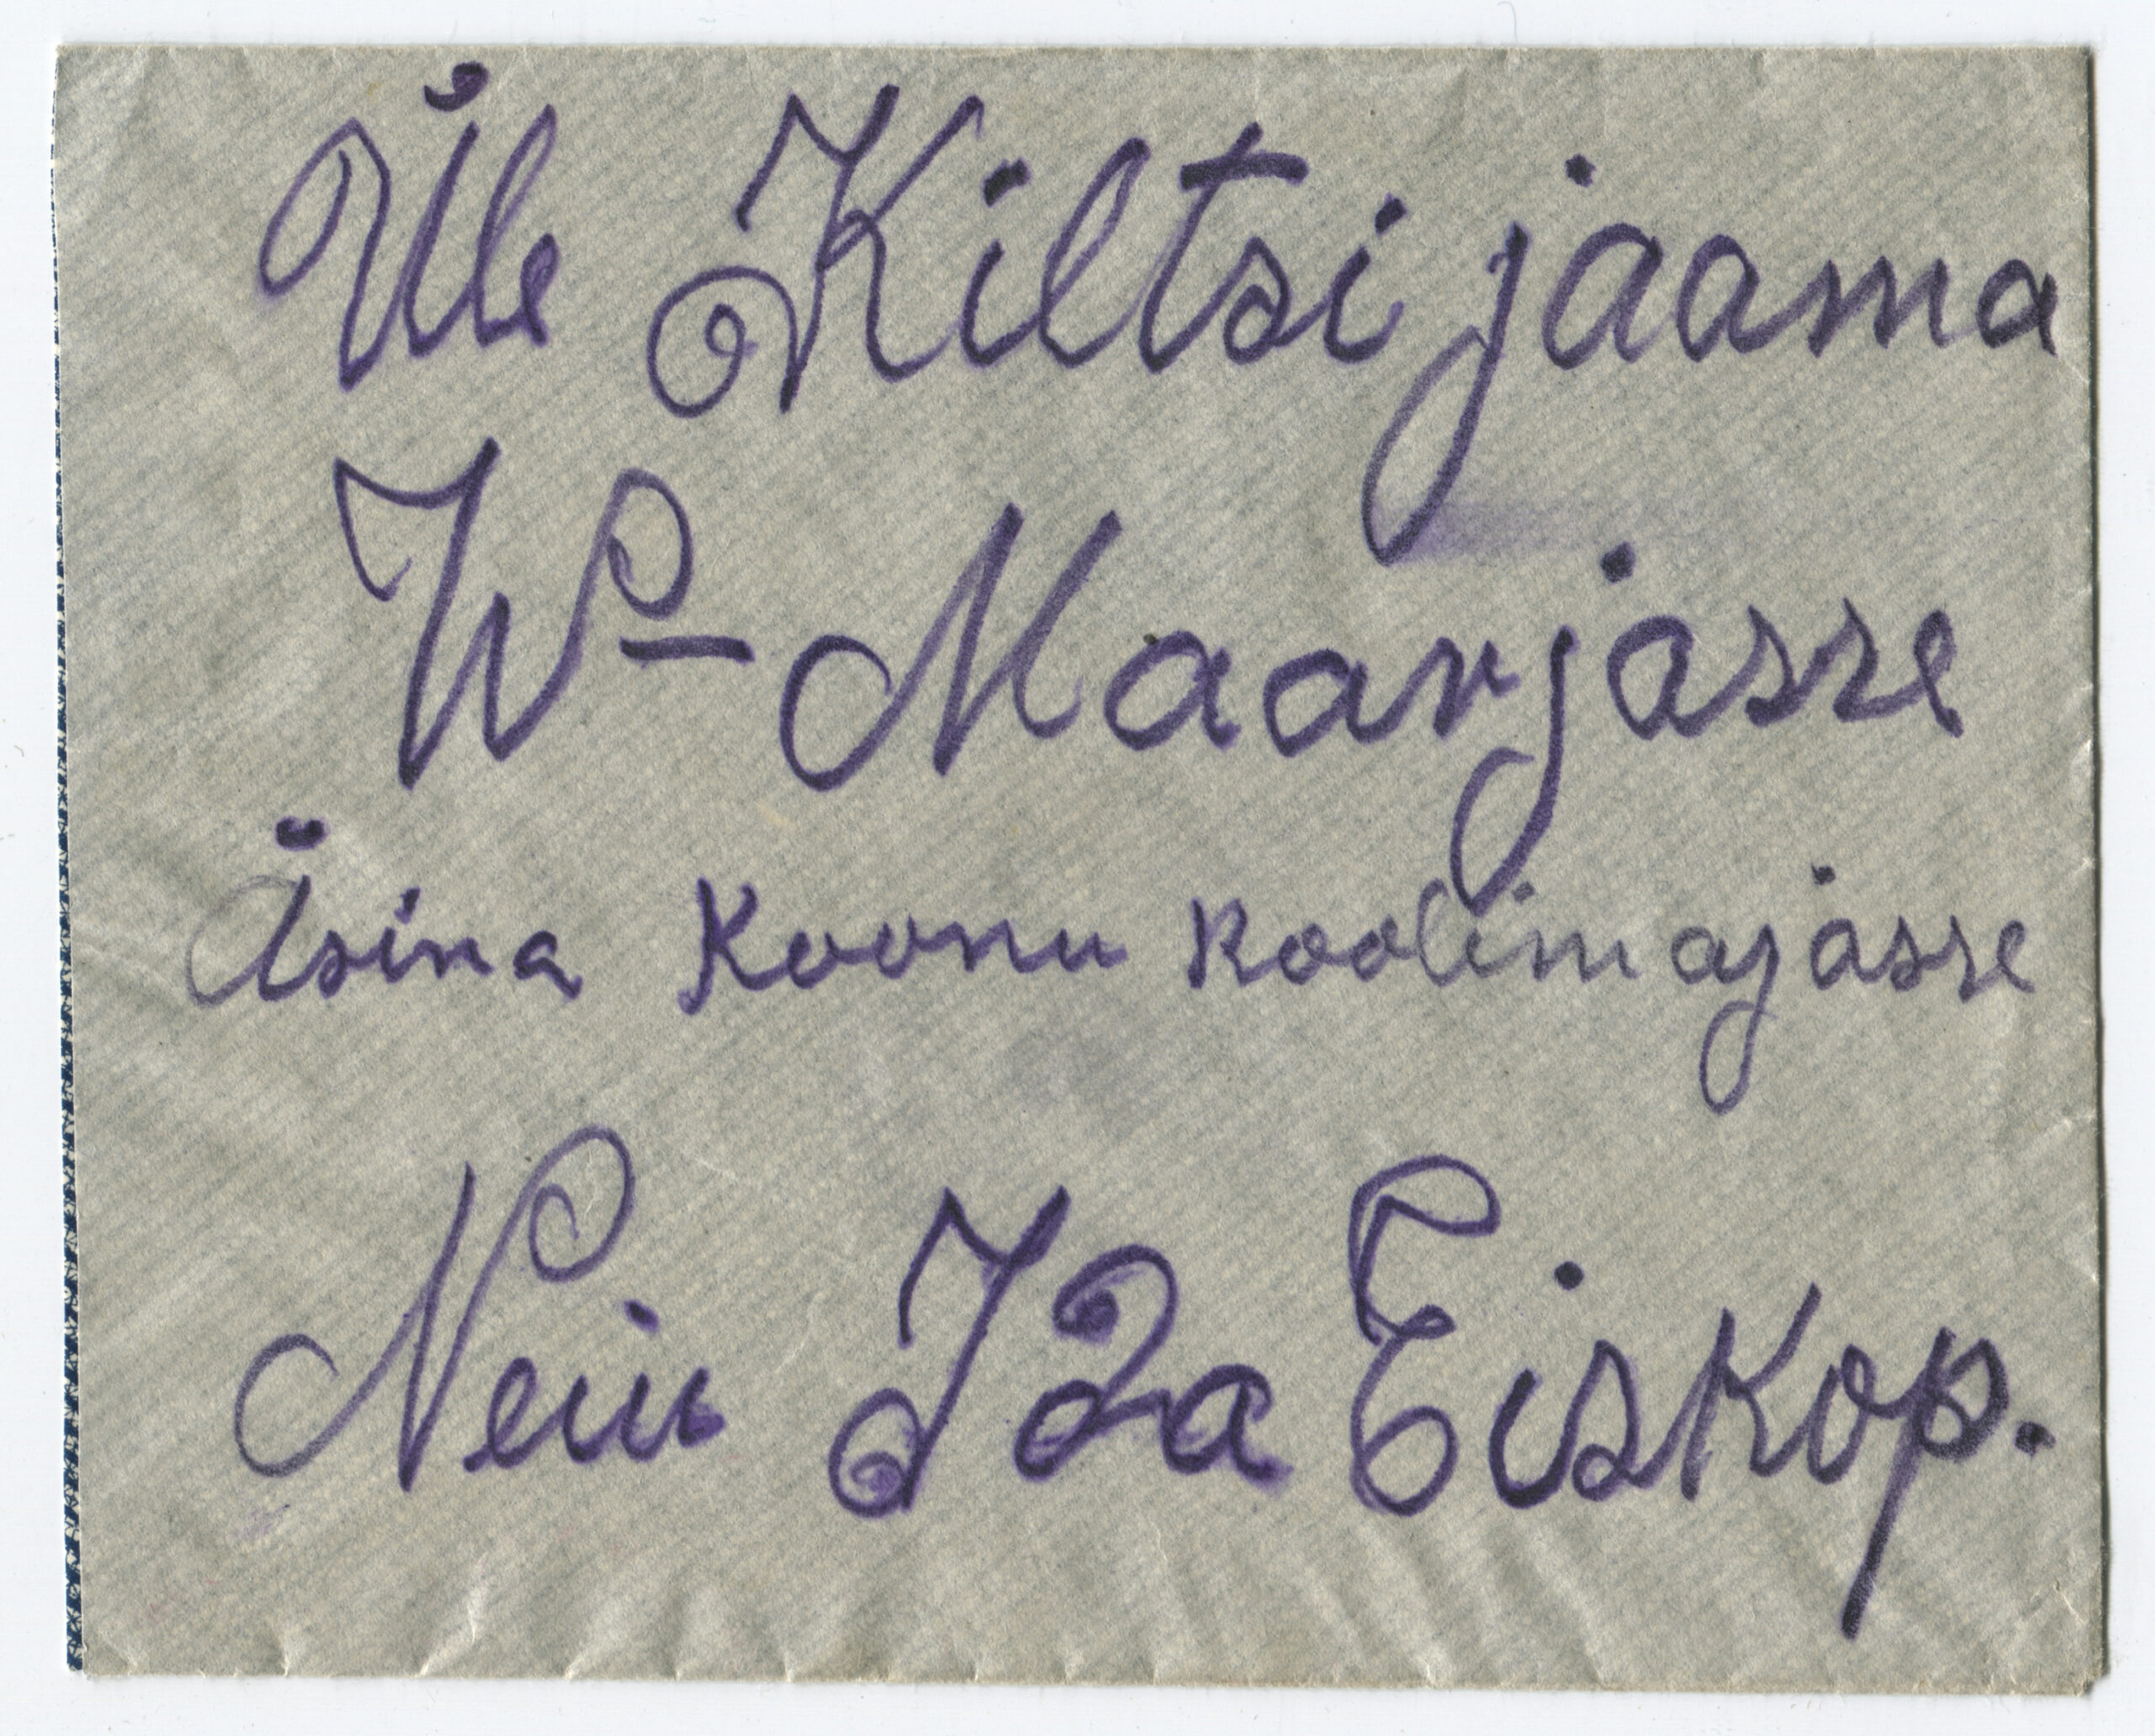 Üle Kiltsi jaama
W-Maarjasse
Äsina Koonu Koolimajasse
Neiu Ida Eiskop.